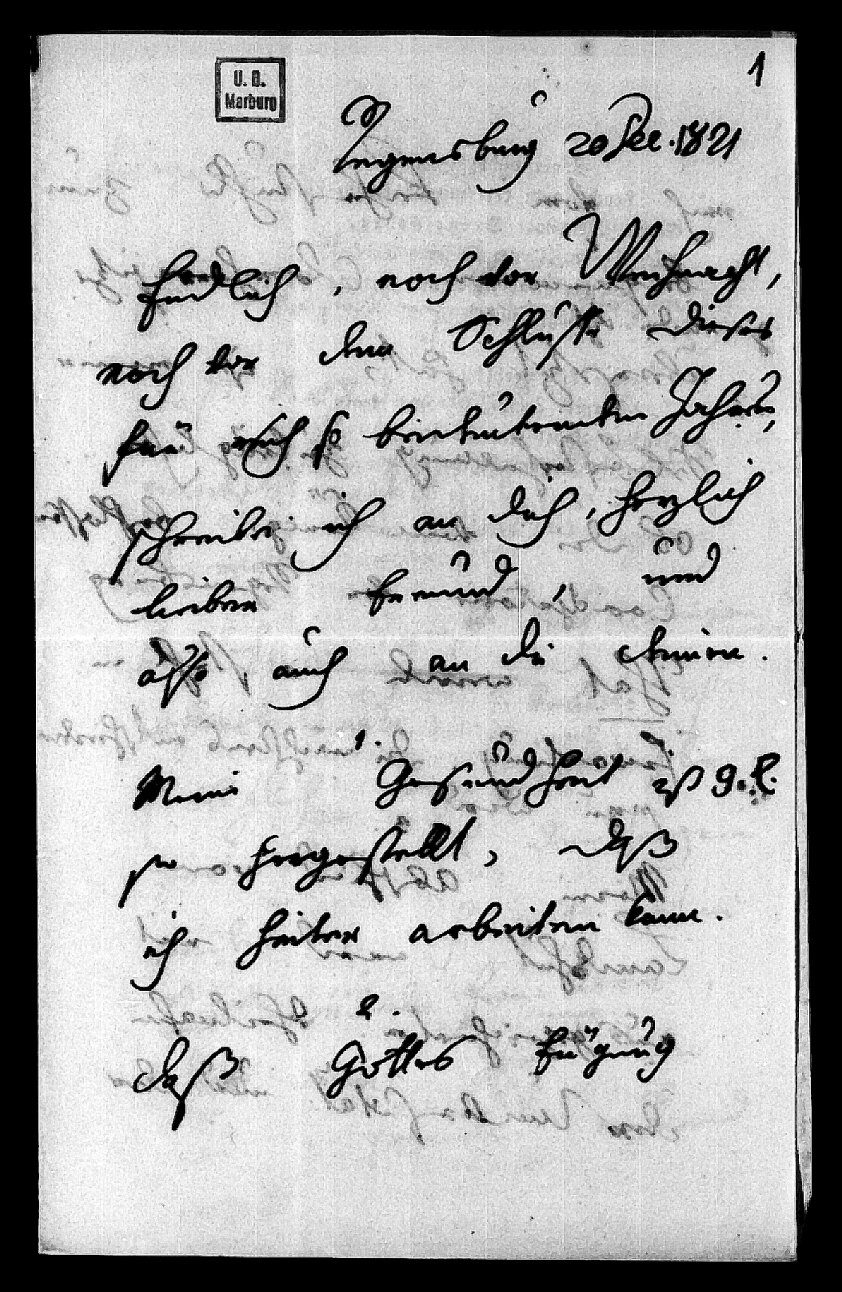 1
U. B.
Marburg
Regensburg 20 Dec. 1821
Endlich, noch vor Weihnacht,
noch vor dem Schlusse dieses
für mich so bedeutenden Jahres,
schreibe ich an dich, herzlich
lieber Freund, und
also, auch an die deinen.
1.
Meine Gesundheit ist g. l.
so hergestellt, daß
ich heiter arbeiten kann.
2.
Daß Gottes Fügung